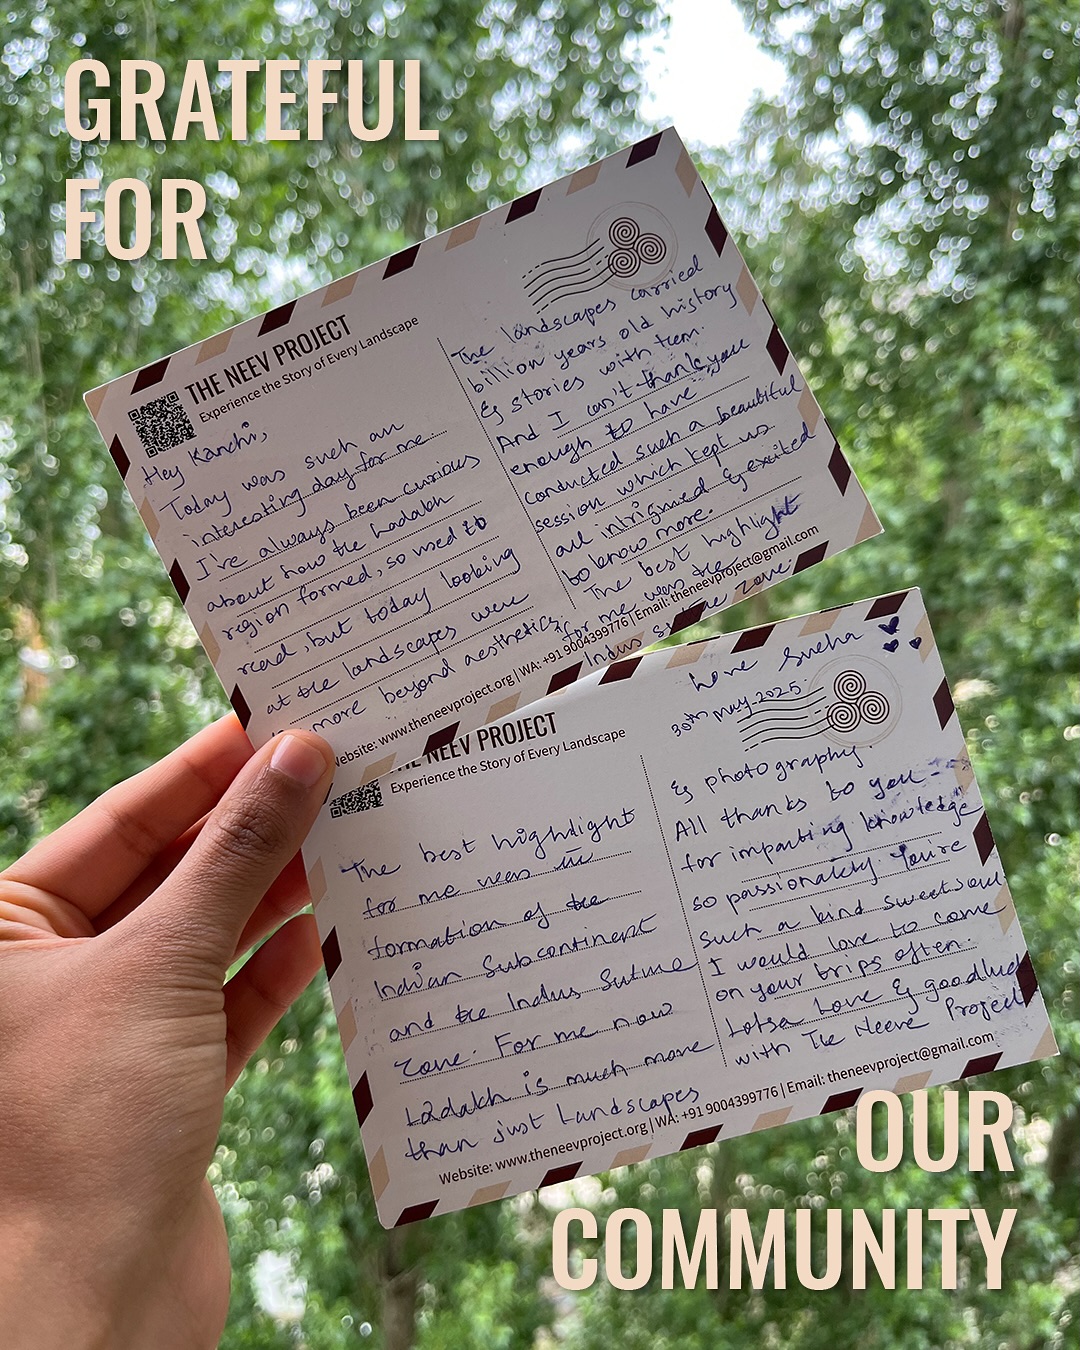 GRATEFUL
FOR
THE NEEV PROJECT
Experience the Story of Every Landscape
Hey Kanchi,
Today was such an
interesting day for me.
I've always been curious
about how the Ladakh
region formed, so used to
read, but today looking
at the landscapes were
more beyond aesthetics.
The landscapes carried
billion years old history
& stories with tem.
And I can't thank you
enough to have
conducted such a beautiful
session which kept us
all intrigued & excited
to know more.
The best highlight
for me was the
Indus zone.
Website: www.theneevproject.org | WA: +91 9004399776 | Email: theneevproject@gmail.com
Love Sneha
30th May 2025.
THE NEEV PROJECT
Experience the Story of Every Landscape
The best highlight
for me was
formation of the
Indian Subcontinent
and the Indus Suture
zone. For me now
Ladakh is much more
than just Landscapes
& photography.
All thanks to you
for imparting knowledge
so passionately. You're
such a kind sweet soul.
I would love to come
on your trips often.
Lotsa Love & goodluck
with The Neeve Project
Website: www.theneevproject.org | WA: +91 9004399776 | Email: theneevproject@gmail.com
OUR
COMMUNITY